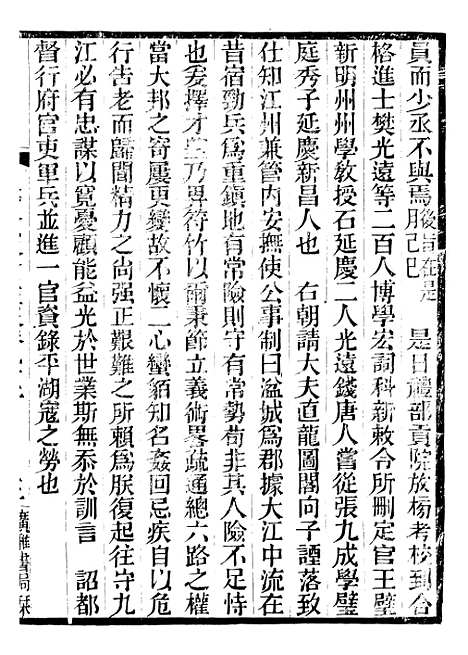 員而少丞不與焉後旨在是月己巳　是日禮部貢院放榜考校到合
格進士樊光遠等二百人博學宏詞科新敕令所刪定官王璧
新明州州學教授石延慶二人光遠錢唐人嘗從張九成學璧
庭秀子延慶新昌人也　右朝請大夫直龍圖閣向子諲落致
仕知江州兼管內安撫使公事制曰湓城為郡據大江中流在
昔宿勁兵為重鎮地有常險則守有常勢苟非其人險不足恃
也爰擇才臣乃畀符竹以爾秉節立義術畧疏通總六路之權
當大邦之寄屢更變故不懷二心蠻貊知名姦回忌疾自以危
行告老而歸閒精力之尚强正艱難之所賴為朕復起往守九
江必有忠謀以寬憂顧能益光於世業斯無忝於訓言　詔都
督行府官吏軍兵並進一官資錄平湖寇之勞也
廣雅書局栞